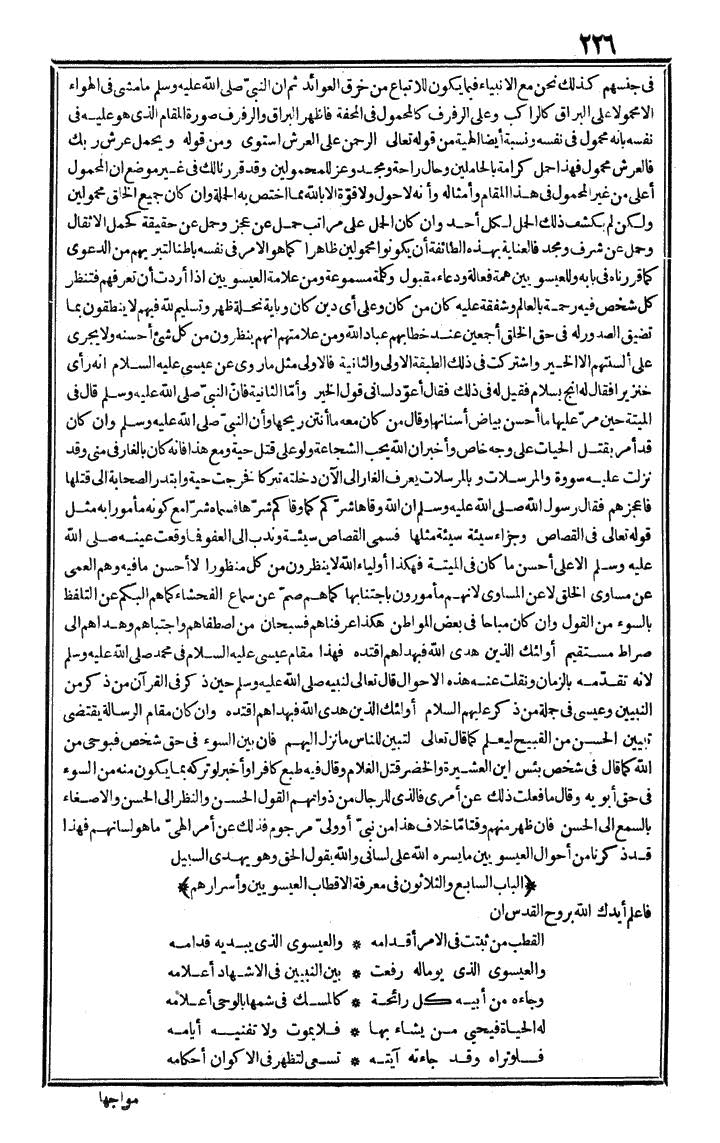 ٢٢٦
فى جنسهم كذلك نحن مع الانبياء فيما يكون للاتباع من خرق العوائد ثم ان النبىّ صلى الله عليه وسلم ما مشى فى الهواء
الا محمولا على البراق كالراكب وعلى الرفرف كالمحمول فى المحفة فاظهر البراق والرفرف صورة المقام الذى هو عليه فى
نفسه بانه محمول فى نفسه ونسبة أيضا الهية من قوله تعالى الرحمن على العرش استوى ومن قوله ويحمل عرش ربك
فالعرش محمول فهذا حمل كرامة بالحاملين وحال راحة ومجد وعز للمحمولين وقد قررنا لك فى غير موضع ان المحمول
أعلى من غير المحمول فى هذا المقام وأمثاله وأنه لا حول ولا قوة الا بالله مما اختص به الحملة وان كان جميع الخلق محمولين
ولكن لم يكشف ذلك الحمل لكل أحد وان كان الحمل على مراتب حمل عن عجز وحمل عن حقيقة كحمل الاثقال
وحمل عن شرف ومجد فالعناية بهذه الطائفة أن يكونوا محمولين ظاهرا كما هو الامر فى نفسه باطنا لتبريهم من الدعوى
كما قررناه فى بابه وللعيسويين همة فعالة ودعاء مقبول وكلمة مسموعة ومن علامة العيسويين اذا أردت أن تعرفهم فتنظر
كل شخص فيه رحمة بالعالم وشفقة عليه كان من كان وعلى أى دين كان وباية نحلة ظهر وتسليم لله فيهم لا ينطقون بما
تضيق الصدور له فى حق الخلق أجمعين عند خطابهم عباد الله ومن علامتهم انهم ينظرون من كل شئ أحسنه ولا يجرى
على ألسنتهم الا الخير واشتركت فى ذلك الطبقة الاولى والثانية فالاولى مثل ما روى عن عيسى عليه السلام انه رأى
خنزيرا فقال له انج بسلام فقيل له فى ذلك فقال أعوّد لسانى قول الخير وأمّا الثانية فانّ النبىّ صلى الله عليه وسلم قال فى
الميتة حين مرّ عليها ما أحسن بياض أسنانها وقال من كان معه ما أنتن ريحها وأن النبىّ صلى الله عليه وسلم وان كان
قد أمر بقتل الحيات على وجه خاص وأخبر ان الله يحب الشجاعة ولو على قتل حية ومع هذا فانه كان بالغار فى منى وقد
نزلت عليه سورة والمرسلات وبالمرسلات يعرف الغار الى الآن دخلته تبركا فخرجت حية وابتدر الصحابة الى قتلها
فاعجزهم فقال رسول الله صلى الله عليه وسلم ان الله وقاها شرّكم كما وقاكم شرّها فسماه شرّا مع كونه مأمورا به مثل
قوله تعالى فى القصاص وجزاء سيئة سيئة مثلها فسمى القصاص سيئة وندب الى العفو فما وقعت عينه صلى الله
عليه وسلم الا على أحسن ما كان فى الميتة فهكذا أولياء الله لا ينظرون من كل منظور الا أحسن ما فيه وهم العمى
عن مساوى الخلق لا عن المساوى لانهم مأمورون باجتنابها كما هم صمّ عن سماع الفحشاء كما هم البكم عن التلفظ
بالسوء من القول وان كان مباحا فى بعض المواطن هكذا عرفناهم فسبحان من اصطفاهم واجتباهم وهداهم الى
صراط مستقيم أولئك الذين هدى الله فبهداهم اقتده فهذا مقام عيسى عليه السلام فى محمد صلى الله عليه وسلم
لانه تقدّمه بالزمان ونقلت عنه هذه الاحوال قال تعالى لنبيه صلى الله عليه وسلم حين ذكر فى القرآن من ذكر من
النبيين وعيسى فى جملة من ذكر عليهم السلام أولئك الذين هدى الله فبهداهم اقتده وان كان مقام الرسالة يقتضى
تبيين الحسن من القبيح ليعلم كما قال تعالى لتبين للناس ما نزل اليهم فان بين السوء فى حق شخص فبوحى من
الله كما قال فى شخص بئس ابن العشيرة والخضر قتل الغلام وقال فيه طبع كافرا وأخبر لو تركه بما يكون منه من السوء
فى حق أبويه وقال ما فعلت ذلك عن أمرى فالذى للرجال من ذواتهم القول الحسن والنظر الى الحسن والاصغاء
بالسمع الى الحسن فان ظهر منهم وقتا مّا خلاف هذا من نبىّ أو ولىّ مرجوم فذلك عن أمر الهىّ ما هو لسانهم فهذا
قد ذكرنا من أحوال العيسويين ما يسره الله على لسانى والله يقول الحق وهو يهدى السبيل
﴿الباب السابع والثلاثون فى معرفة الاقطاب العيسويين وأسرارهم﴾
فاعلم أيدك الله بروح القدس ان
القطب من ثبتت فى الامر أقدامه * والعيسوى الذى يبديه قدامه
والعيسوى الذى يوما له رفعت * بين النبيين فى الاشهاد أعلامه
وجاءه من أبيه كل رائحة * كالمسك فى شمها بالوحى أعلامه
له الحياة فيحيى من يشاء بها * فلا يموت ولا تفنيه أيامه
فلو تراه وقد جاءته آيته * تسعى لتظهر فى الاكوان أحكامه
مواجها